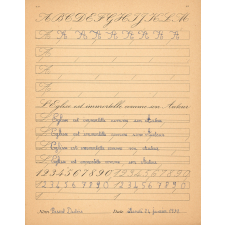 A B C D E F G H I J K L M
R R R R R R R R
L'Eglise est immortelle comme son Auteur
L'Eglise est immortelle comme son Auteur
L'Eglise est immortelle comme son Auteur
L'Eglise est immortelle comme son Auteur
L'Eglise est immortelle comme son Auteur
1 2 3 4 5 6 7 8 9 0 1 2 3 4 5 6 7 8 9 0
1 2 3 4 5 6 7 8 9 0 1 2 3 4 5 6 7 8 9 0
Nom Date